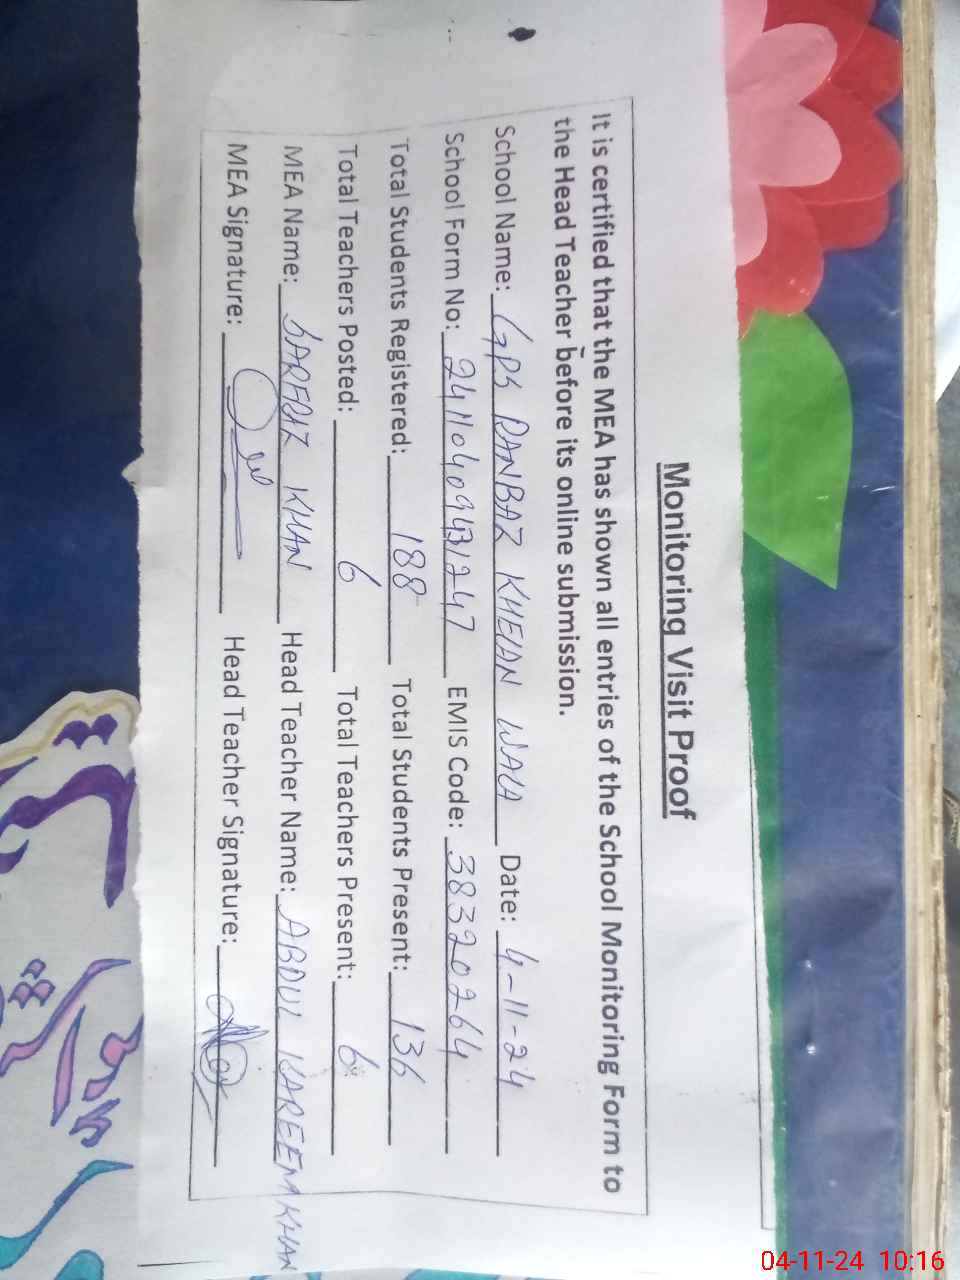 Monitoring Visit Proof
It is certified that the MEA has shown all entries of the School Monitoring Form to
the Head Teacher before its online submission.
School Name: GPS RANBAZ KHELAN WALA Date: 4-11-24
School Form No: 24110409431247 EMIS Code: 38320264
Total Students Registered: 188 Total Students Present: 136
Total Teachers Posted: 6 Total Teachers Present: 6
MEA Name: SARFRAZ KHAN Head Teacher Name: ABDUL KAREEM KHAN
MEA Signature: Head Teacher Signature:
04-11-24 10:16